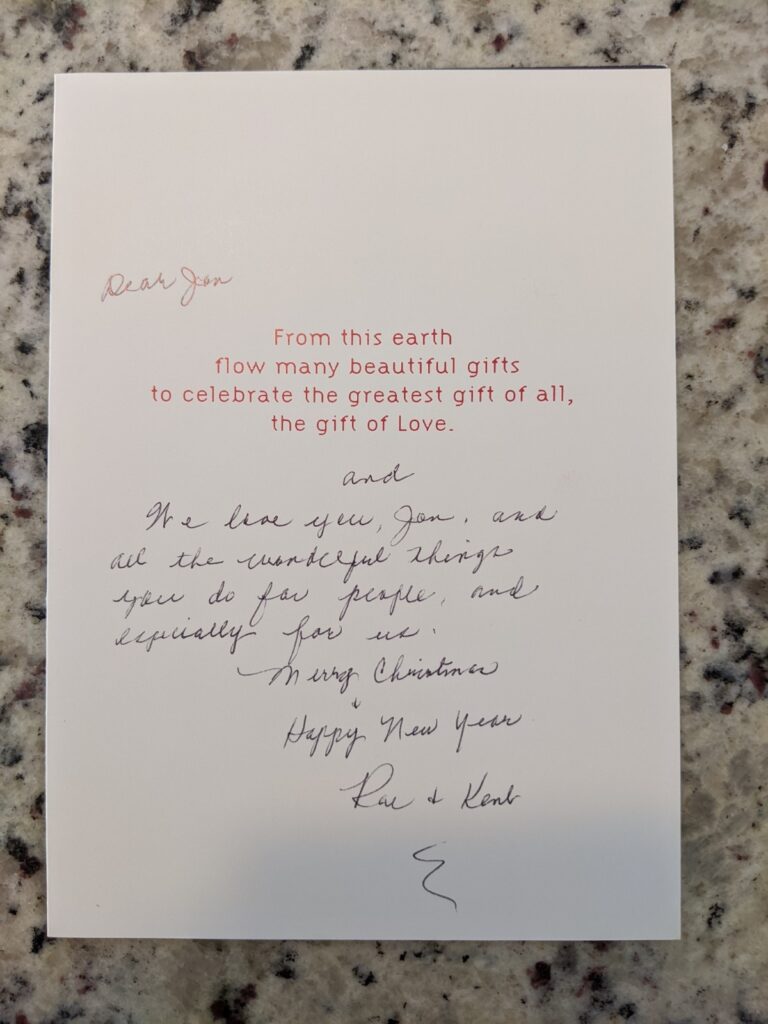 Dear Jon
From this earth
flow many beautiful gifts
to celebrate the greatest gift of all,
the gift of Love.
and
We love you, Jon, and
all the wonderful things
you do for people, and
especially for us.
Merry Christmas
&
Happy New Year
Rae & Kent